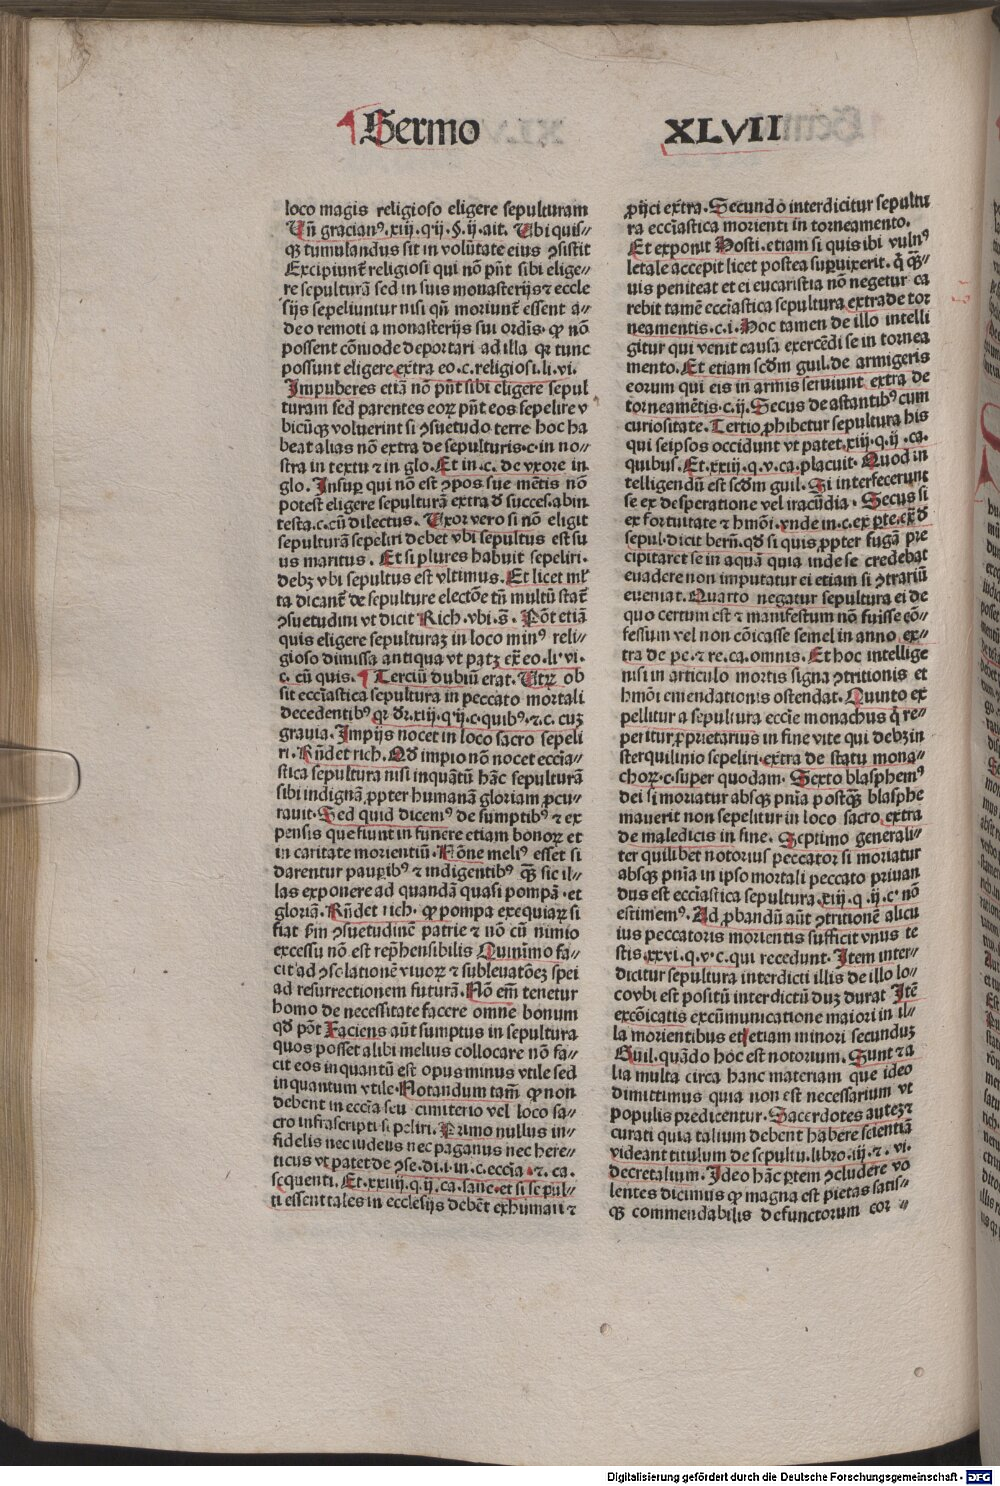 Sermo XLVII
loco magis religioso eligere sepulturam
Vñ gracianꝰ.xiij.q.ij.§.ij.ait. Vbi quis⸗
qꝫ tumulandus sit in volũtate eius ꝯsistit
Excipiunt᷑ religiosi qui nõ pñt sibi elige⸗
re sepulturã sed in suis monasterijs ⁊ eccle
sijs sepeliuntur nisi qñ moriunt᷑ essent a⸗
deo remoti a monasterijs sui ordĩs. ꝙ nõ
possent cõmode deportari ad illa qꝛ tunc
possunt eligere extra eo.c.religiosi.li.vi.
Impuberes etiã nõ pñt sibi eligere sepul
turam sed parentes eoꝝ pñt eos sepelire v
bicũqꝫ voluerint si ꝯsuetudo terre hoc ha
beat alias nõ extra de sepulturis.c.in no⸗
stra in textu ⁊ in glo. Et in.c. de vxore in
glo. Insuꝑ qui nõ est ꝯpos sue mẽtis nõ
potest eligere sepulturã extra đ succes.abin
testa.c.cũ dilectus. Vxor vero si nõ eligit
sepulturã sepeliri debet vbi sepultus est su
us maritus. Et si plures habuit sepeliri.
debꝫ vbi sepultus est vltimus. Et licet ml̃
ta dicant᷑ de sepulture electõe tñ multũ stat᷑
ꝯsuetudini vt dicit Rich.vbi.s̃. Põt etiã
quis eligere sepulturaꝫ in loco minꝰ reli⸗
gioso dimissa antiqua vt patꝫ ex̃ eo.li.vi.
c. cũ quis. ¶ Terciũ dubiũ erat. Vtꝝ ob
sit ecc̃iastica sepultura in peccato mortali
decedentibꝰ qꝛ dr̃.xiij.q.ij.c.quibꝰ.⁊.c. cuꝫ
grauia. Impijs nocet in loco sacro sepeli
ri. Rñdet rich. Qđ impio nõ nocet ecc̃ia⸗
stica sepultura nisi inquãtũ hãc sepulturã
sibi indignã ꝓpter humanã gloriam ꝓcu⸗
rauit. Sed quid dicemꝰ de sumptibꝰ ⁊ ex
pensis que fiunt in funere etiam bonoꝝ et
in caritate morientiũ. Nõne meliꝰ esset si
darentur pauꝑibꝰ ⁊ indigentibꝰ qꝫ̃ sic il⸗
las exponere ad quandã quasi pompã.et
gloriã. Rñdet rich. ꝙ pompa exequiaꝝ si
fiat ẜm ꝯsuetudinẽ patrie ⁊ nõ cũ nimio
excessu nõ est rep̃hensibilis Quinimo fa⸗
cit ad ꝯsolationẽ viuoꝝ ⁊ subleuatõeꝫ spei
ad resurrectionem futurã. Nõ em̃ tenetur
homo de necessitate facere omne bonum
qđ põt Faciens aũt sumptus in sepultura
quos posset alibi melius collocare nõ fa⸗
cit eos inquantũ est opus minus vtile sed
inquantum vtile. Notandum tam̃ ꝙ non
debent in ecc̃ia seu cimiterio vel loco sa⸗
cro infrascripti sepeliri. Primo nullus in⸗
fidelis nec iudeus nec paganus nec here⸗
ticus vt patet de ꝯse.di.i.in.c.ecc̃ia.⁊. ca.
sequenti. Et.xxiiij.q.ij.ca.sane.et si sepul⸗
ti essent tales in ecclesijs debẽt exhumari ⁊
ꝓijci ext̃ra. Secundo interdicitur sepultu
ra ecc̃iastica morienti in torneamento.
Et exponit Hosti.etiam si quis ibi vulnꝰ
letale accepit licet postea suꝑuixerit. q̃ qꝫ̃⸗
uis peniteat et ei eucaristia nõ negetur ca
rebit tamẽ ecc̃iastica sepultura extra de tor
neamentis.c.i. Hoc tamen de illo intelli
gitur qui venit causa exercẽdi se in tornea
mento. Et etiam scđm guil. de armigeris
eorum qui eis in armis seruiunt extra de
torneamẽtis.c.ij. Secus de astantibꝰ cum
curiositate. Tertio ꝓhibetur sepultura his
qui seipsos occidunt vt patet.xiij.q.ij.ca.
quibus. Et.xxiij.q.v.ca.placuit. Quod in
telligendũ est scđm guil. Si interfecerunt
se ex desperatione vel iracũdia. Secus si
ex fortuitate ⁊ hmõi.vnde in.c.ex ꝑte.ex̃.đ
sepul.dicit bern̄. qđ si quis ꝓpter fugã pre
cipitaret se in aquã quia inde se credebat
euadere non imputatur ei etiam si ꝯtrariũ
eueniat. Quarto negatur sepultura ei de
quo certum est ⁊ manifestum nõ fuisse cõ⸗
fessum vel non cõicasse semel in anno ex⸗
tra de pe.⁊ re.ca.omnis. Et hoc intellige
nisi in articulo mortis signa ꝯtritionis et
hmõi emendationis ostendat. Quinto ex
pellitur a sepultura ecc̃ie monachus q̃ re⸗
peritur ꝓprietarius in fine vite qui debꝫ in
sterquilinio sepeliri.extra de statu mona⸗
choꝝ.c.super quodam. Sexto blasphemꝰ
dei si moriatur absqꝫ pñia postqꝫ̃ blasphe
mauerit non sepelitur in loco sacro extra
de maledicis in fine. Septimo generali⸗
ter quilibet notorius peccator si moriatur
absqꝫ pñia in ipso mortali peccato priuan
dus est ecc̃iastica sepultura.xiij.q.ij.c. nõ
estimemꝰ. Ad ꝓbandũ aũt ꝯtritionẽ alicu
ius peccatoris morientis sufficit vnus te
stis.xxvi.q.v.c.qui recedunt. Item inter⸗
dicitur sepultura interdicti illis de illo lo⸗
co vbi est positũ interdictũ duꝫ durat Itẽ
excõicatis excũmunicatione maiori in il⸗
la morientibus et etiam minori secunduꝫ
Guil.quãdo hoc est notorium. Sunt ⁊ a
lia multa circa hanc materiam que ideo
dimittimus quia non est necessarium vt
populis predicentur. Sacerdotes auteꝫ ⁊
curati quia talium debent habere scientiã
videant titulum de sepultu.libro.iij.⁊.vi.
decretalium. Ideo hãc ꝑtem ꝯcludere vo
lentes dicimus ꝙ magna est pietas satis⸗
qꝫ commendabilis defunctorum cor⸗
Digitalisierung gefördert durch die Deutsche Forschungsgemeinschaft - DFG